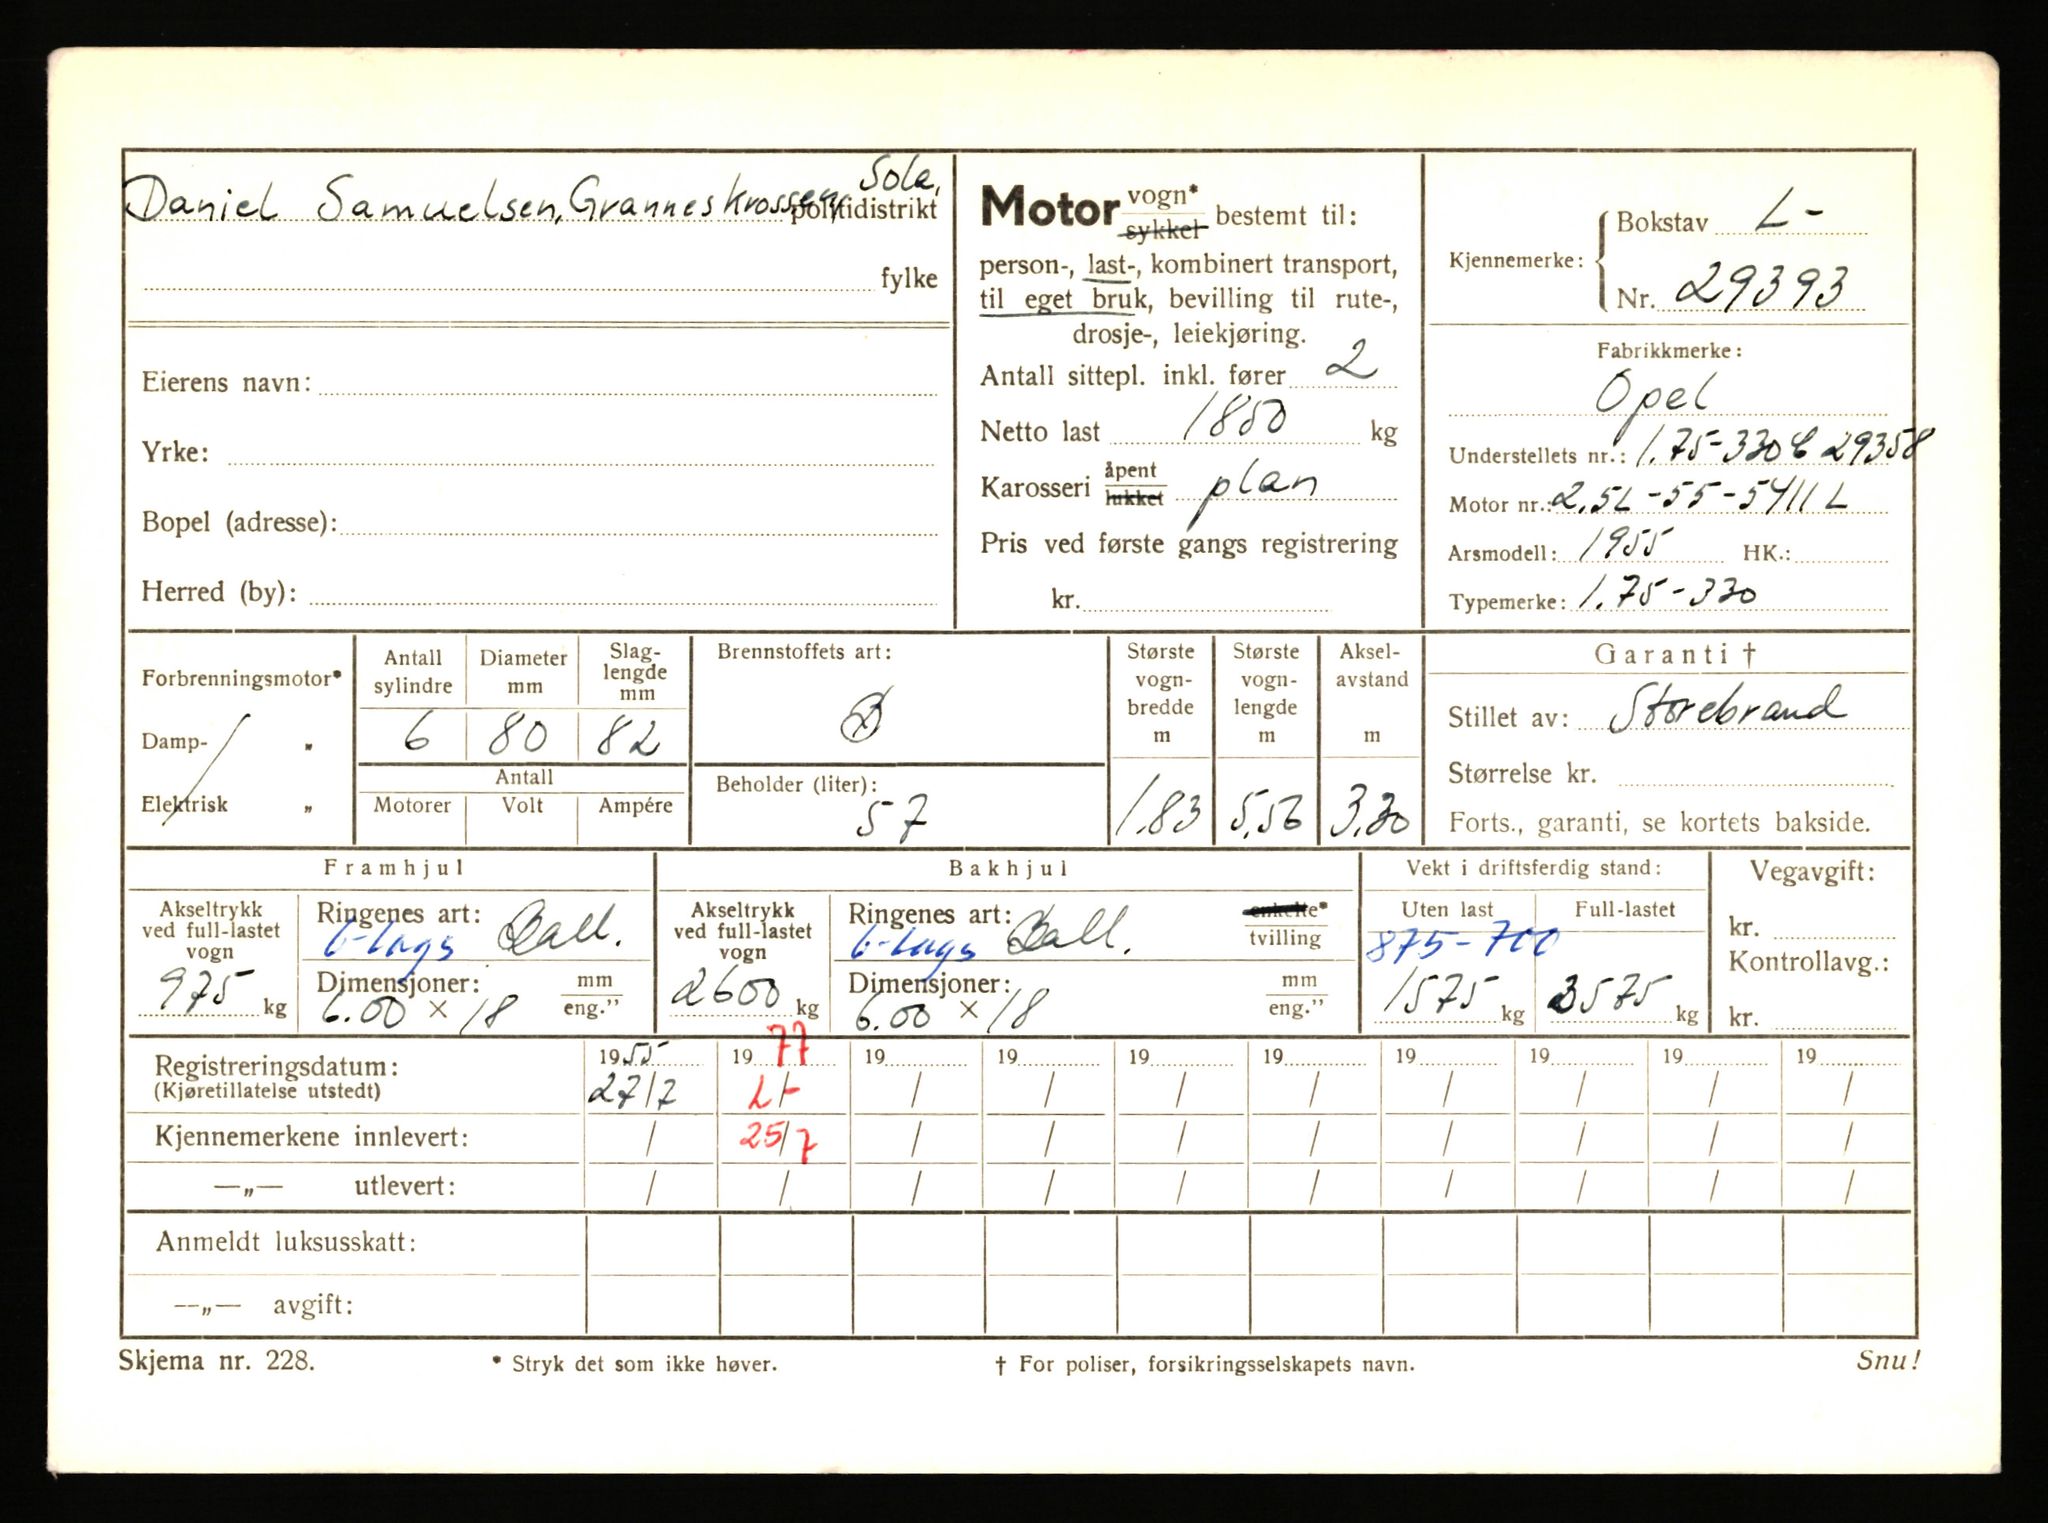 Daniel Samuelsen, Granneskrossen, Sola, politidistrikt
fylke
Eierens navn:
Yrke:
Bopel (adresse):
Herred (by):
Motor vogn* sykkel bestemt til:
person-, last-, kombinert transport,
til eget bruk, bevilling til rute-,
drosje-, leiekjøring.
Antall sittepl. inkl. fører 2
Netto last 1850 kg
Karosseri åpent lukket plan
Pris ved første gangs registrering
kr.
Kjennemerke: Bokstav L-
Nr. 29393
Fabrikkmerke:
Opel
Understellets nr.: 1.75-330 29358
Motor nr.: 2.5L-55-5411L
Arsmodell: 1955 HK.:
Typemerke: 1.75-330
Forbrenningsmotor*
Damp- „
Elektrisk „
Antall sylindre Diameter mm Slaglengde mm
6 80 82
Antall
Motorer Volt Ampére
Brennstoffets art:
B
Beholder (liter):
57
Største vogn-bredde m Største vogn-lengde m Aksel-avstand m
1.83 5.56 3.30
Garanti †
Stillet av: Storebrand
Størrelse kr.
Forts., garanti, se kortets bakside.
Framhjul
Akseltrykk ved full-lastet vogn
975 kg
Ringenes art: 6-lags Ball.
Dimensjoner: mm eng."
6.00 × 18
Bakhjul
Akseltrykk ved full-lastet vogn
2600 kg
Ringenes art: 6-lags Ball. enkelte* tvilling
Dimensjoner: mm eng."
6.00 × 18
Vekt i driftsferdig stand:
Uten last Full-lastet
875-700
1575 kg 3575 kg
Vegavgift:
kr.
Kontrollavg.:
kr.
Registreringsdatum: 1955 1977 19 19 19 19 19 19 19 19
(Kjøretillatelse utstedt) 27/7 L/- / / / / / / / /
Kjennemerkene innlevert: / 25/7 / / / / / / / /
—„— utlevert: / / / / / / / / / /
Anmeldt luksusskatt:
—„— avgift:
Skjema nr. 228. * Stryk det som ikke høver. † For poliser, forsikringsselskapets navn. Snu!